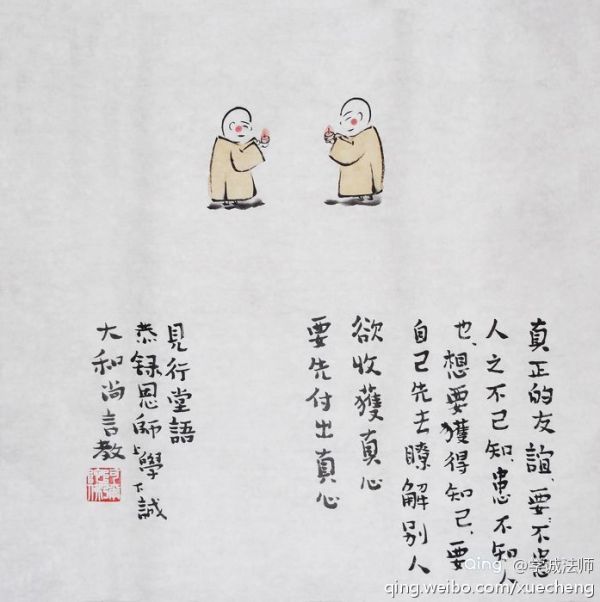 真正的友誼、要“不患
人之不己知、患不知人
也、想要獲得知己、要
自己先去瞭解別人
欲收獲真心
要先付出真心
見行堂語
恭録恩師上學下誠
大和尚言教
Qing @学诚法师
qing.weibo.com/xuecheng